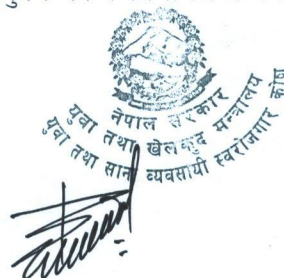 नेपाल सरकार
युवा तथा खेलकुद मन्त्रालय
युवा तथा साना व्यवसायी स्वरोजगार कोष